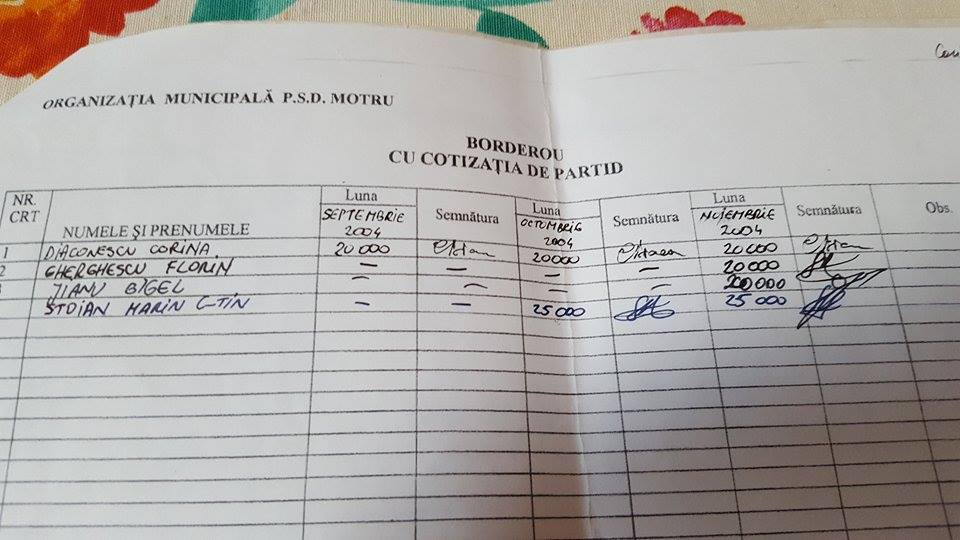 ORGANIZAȚIA MUNICIPALĂ P.S.D. MOTRU
BORDEROU
CU COTIZAȚIA DE PARTID
NR. CRT NUMELE ȘI PRENUMELE Luna SEPTEMBRIE 2004 Semnătura Luna OCTOMBRIE 2004 Semnătura Luna NOIEMBRIE 2004 Semnătura Obs.
1 DIACONESCU CORINA 20 000 20000 20000
2 GHERGHESCU FLORIN — — — — 20000
JIANU GIGEL — — — — 20000
STOIAN MARIN C-TIN — — 25 000 25 000